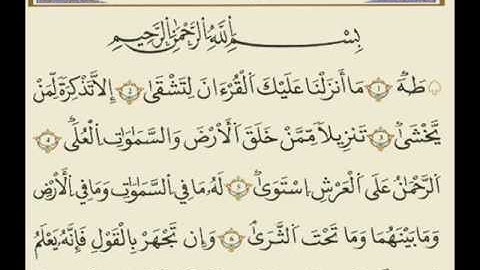 بِسْمِ اللَّهِ الرَّحْمَٰنِ الرَّحِيمِ
طه ۝١ مَا أَنزَلْنَا عَلَيْكَ الْقُرْءَانَ لِتَشْقَىٰ ۝٢ إِلَّا تَذْكِرَةً لِّمَن
يَخْشَىٰ ۝٣ تَنزِيلًا مِّمَّنْ خَلَقَ الْأَرْضَ وَالسَّمَٰوَٰتِ الْعُلَى ۝٤
الرَّحْمَٰنُ عَلَى الْعَرْشِ اسْتَوَىٰ ۝٥ لَهُ مَا فِي السَّمَٰوَٰتِ وَمَا فِي الْأَرْضِ
وَمَا بَيْنَهُمَا وَمَا تَحْتَ الثَّرَىٰ ۝٦ وَإِن تَجْهَرْ بِالْقَوْلِ فَإِنَّهُ يَعْلَمُ